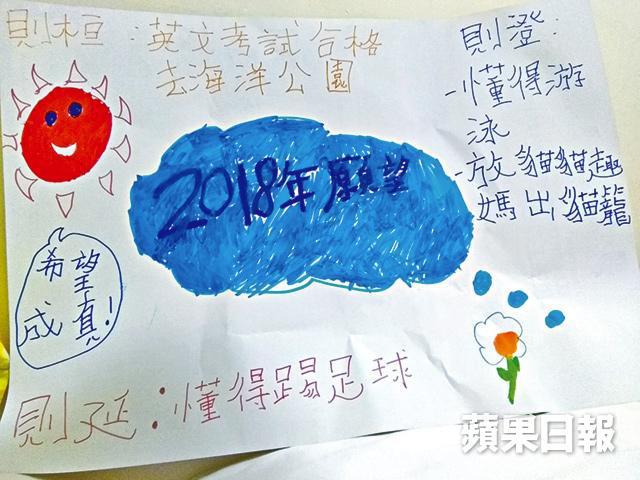 則桓:英文考試合格
去海洋公園
則澄:
-懂得游
泳
-放貓貓趣
媽出貓籠
2018年願望
希望
成真!
則延:懂得踢足球
蘋果日報